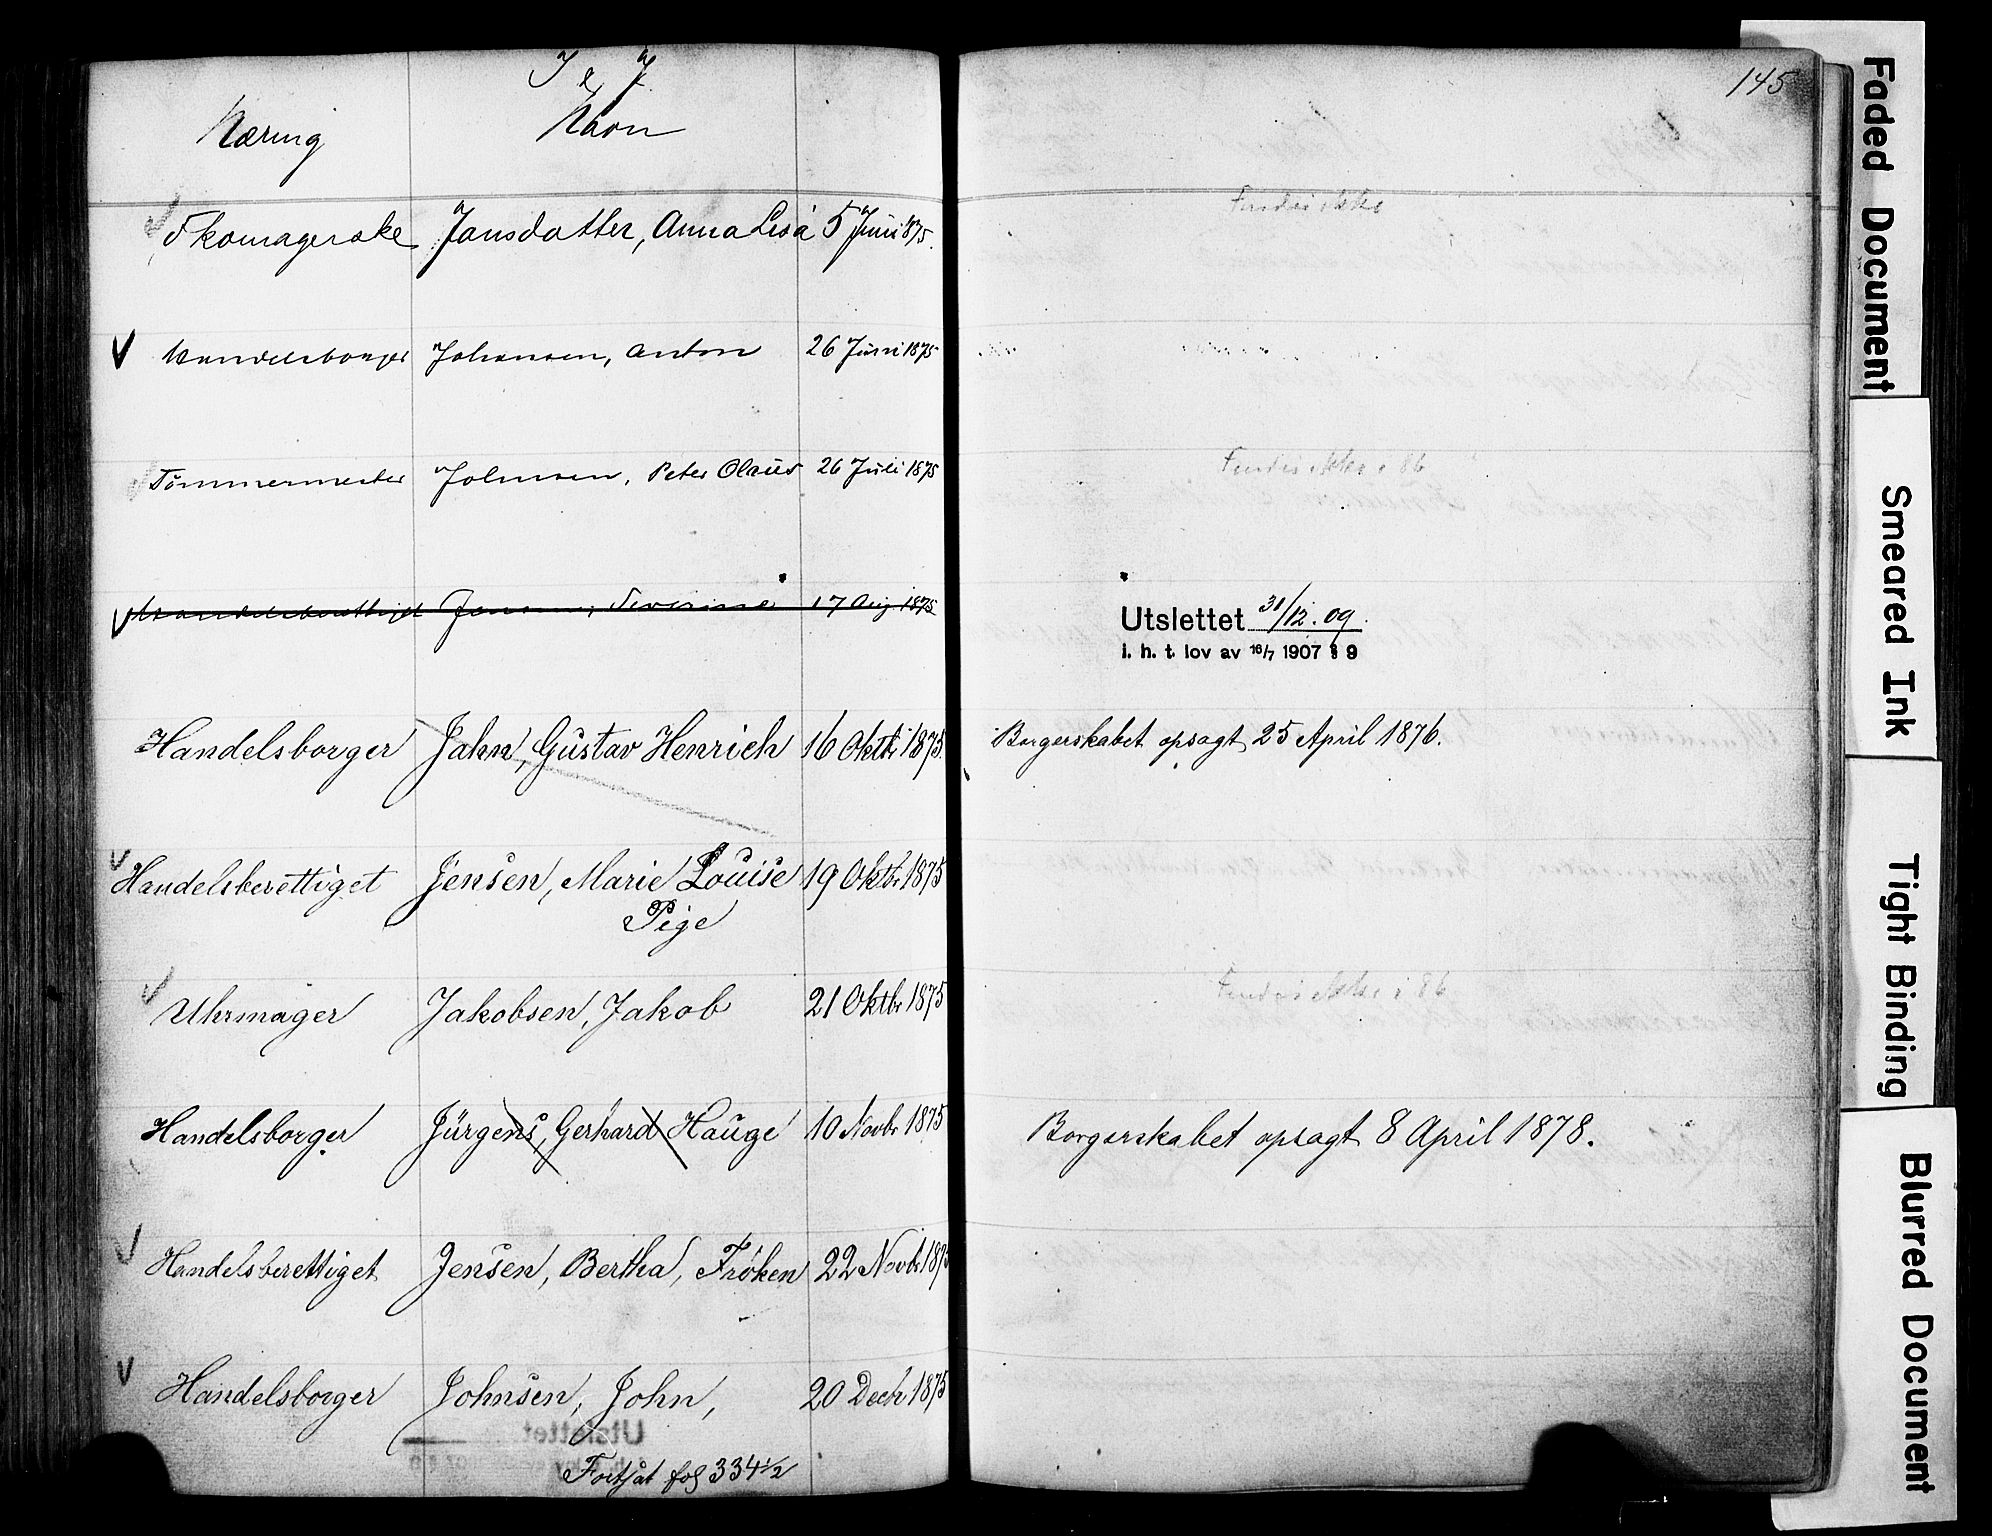 I & J
145
Næring Navn
Findes ikke
Jansdatter, Anna Lisa 5 Juni 1875.
Handelsborger Johansen, Anton 26 Juni 1875
Tømmermester Johnsen, Peter Olaus 26 Juli 1875
Findes ikke i 86
Handelsberettiget Severine 17 Aug 1875
Utslettet 31/12.09.
i. h. t. lov av 16/7 1907 § 9
Handelsborger Jahn, Gustav Henrich 16 Oktbr 1875. Borgerskabet opsagt 25 April 1876.
Handelsberettiget Jensen, Marie Louise 19 Oktbr 1875
Pige
Findes ikke i 86
Uhrmager Jakobsen, Jakob 21 Oktbr 1875
Handelsborger Jürgens, Gerhard Hauge 10 Novbr 1875 Borgerskabet opsagt 8 April 1878.
Handelsberettiget Jensen, Bertha, Frøken 22 Novbr 1875
Handelsborger Johnsen, John, 20 Decbr 1875
Utslettet
Fortsat fol 334 1/2
Faded Document
Smeared Ink
Tight Binding
Blurred Document